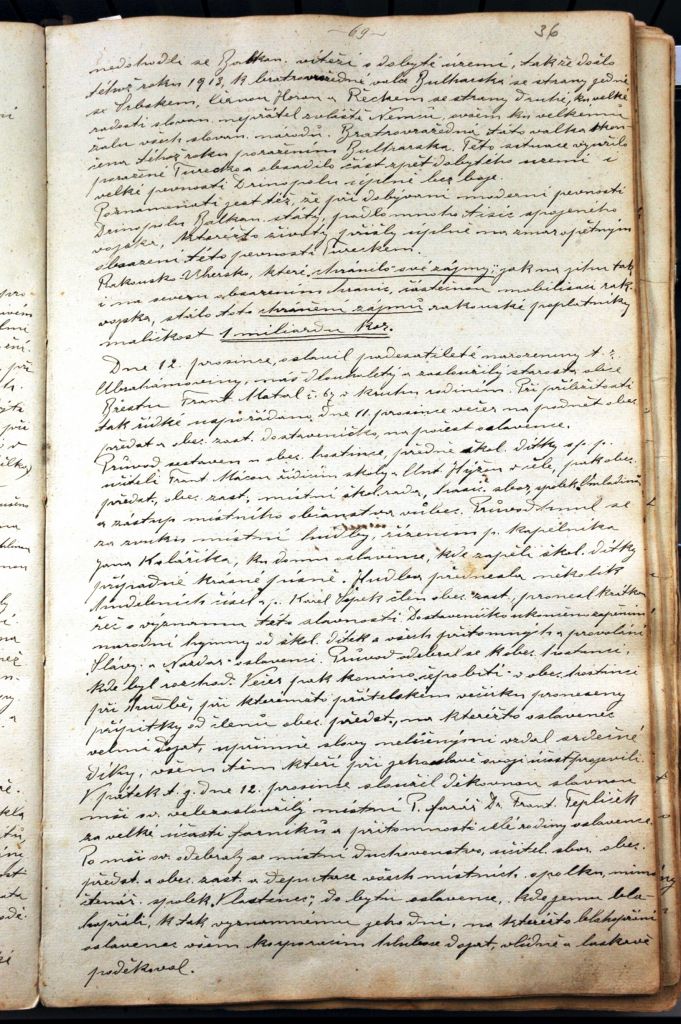 -69-
36
nedohodli se Balkan. vítězi o dobyté území, takže došlo
téhož roku 1913, k bratrovražedné válce Bulharska se strany jedné
se Srbskem, Černou Horou a Řeckem se strany druhé, ku velké
radosti slovan. nepřátel zvláště Němců, ovšem ku velkému
žalu všech slovan. národů. Bratrovražedná tato válka skon-
čena téhož roku poražením Bulharska. Této situace využilo
poražené Turecko a obsadilo část zpět dobytého území i
velké pevnosti Drinopolu úplně bez boje.
Poznamenati jest též, že při dobývání moderní pevnosti
Drinopolu Balkan. státy, padlo mnoho tisíc spojeného
vojska, kteréžto životy přišly úplně na zmar opětným
obsazením této pevnosti Tureckem.
Rakousko-Uhersko, které "chránilo své zájmy", jak na jihu tak
i na severu obsazením hranic, částečnou mobilisací rak.
vojska, stálo toto chránění zájmů rakouské poplatníky
maličkost 1 miliardu Kor.
Dne 12. prosince, oslavil padesátileté narozeniny t. z.
Abrahamoviny, náš dlouholetý a zasloužilý starosta obce
Břestu Frant. Matal č. 67, v kruhu rodinném. Při příležitosti
tak řídké uspořádáno dne 11. prosince večer na podnět obec.
předst. a obec. zast. dostaveníčko, na počest oslavence.
Průvod sestaven u obec. hostince, předně škol. dítky sp. p.
učiteli Frant. Mácou řídícím školy a Ant. Hýzou v čele, pak obec.
předst., obec. zast., místní škol. rada, hasič. sbor, spolek Omladina
a zástup místního občanstva vůbec. Průvod hnul se
za zvuku místní hudby, řízením p. kapelníka
Jana Kolaříka, ku domu oslavence, kde zapěli škol. dítky
případné krásné písně. Hudba přednesla několik
hudebních čísel a p. Karel Šípek člen obec. zast. pronesl krátkou
řeč o významu této slavnosti. Dostaveníčko ukončeno zapěním
národní hymny od škol. dítek a všech přítomných a provolání
"Slávy" a "Nazdar" oslavenci. Průvod odebral se k obec. hostinci,
kde byl rozchod. Večer pak konáno "pobytí" v obec. hostinci
při hudbě, při kterémžto přátelském večírku proneseny
přípitky od členů obec. předst., na kteréžto oslavenec
velmi dojat, upřímně slovy nelíčenými vzdal srdečné
díky, všem těm kteří při jeho oslavě svoji účast projevili.
V pátek t. j. dne 12. prosince sloužil děkovnou slavnou
mši sv. velezasloužilý místní P. farář Dr. Frant. Tepliček
za velké účasti farníků a přítomnosti celé rodiny oslavence.
Po mši sv. odebraly se místní duchovenstvo, učitel. sbor, obec.
předst. a obec. zast. a deputace všech místních spolků, mimo
čtenář. spolek "Vlastenec", do bytu oslavence, kde jemu bla-
hopřáli, k tak významnému jeho dni, na kteréžto blahopřání
oslavenec všem korporacím hluboce dojat, vlídně a laskavě
poděkoval.